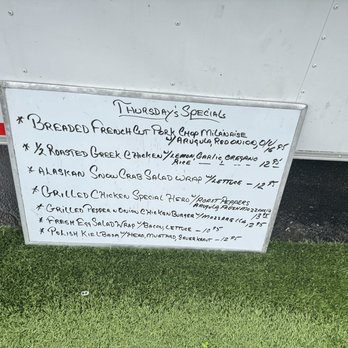 Thursday's Specials
* Breaded French Cut Pork Chop Milanaise
w/ Arugula Red Onion, O/V
* 1/2 Roasted Greek Chicken w/ Lemon, Garlic, Oregano
Rice 12.95
* Alaskan Snow Crab Salad Wrap w/ Lettuce - 12.95
* Grilled Chicken Special Hero w/ Roast Peppers
Arugula Fresh Mozzarella
* Grilled Pepper n Onion Chicken Burger w/ Mozzarella 12.95
* Fresh Egg Salad Wrap w/ Bacon, Lettuce - 10.95
* Polish Kielbasa w/ Hero, Mustard, Sauerkraut - 12.95